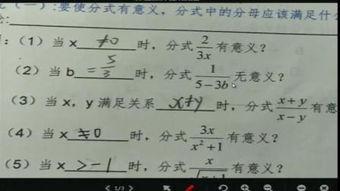 (一):要使分式有意义,分式中的分母应该满足什
:(1)当x ≠0 时,分式 2/3x 有意义?
(2)当b =5/3 时,分式 1/5-3b 无意义?
(3)当x,y满足关系 x≠y 时,分式 x+y/x-y 有意
(4)当x ≠0 时,分式 3x/x²+1 有意义?
(5)当x >-1 时,分式 x/ 有意义?